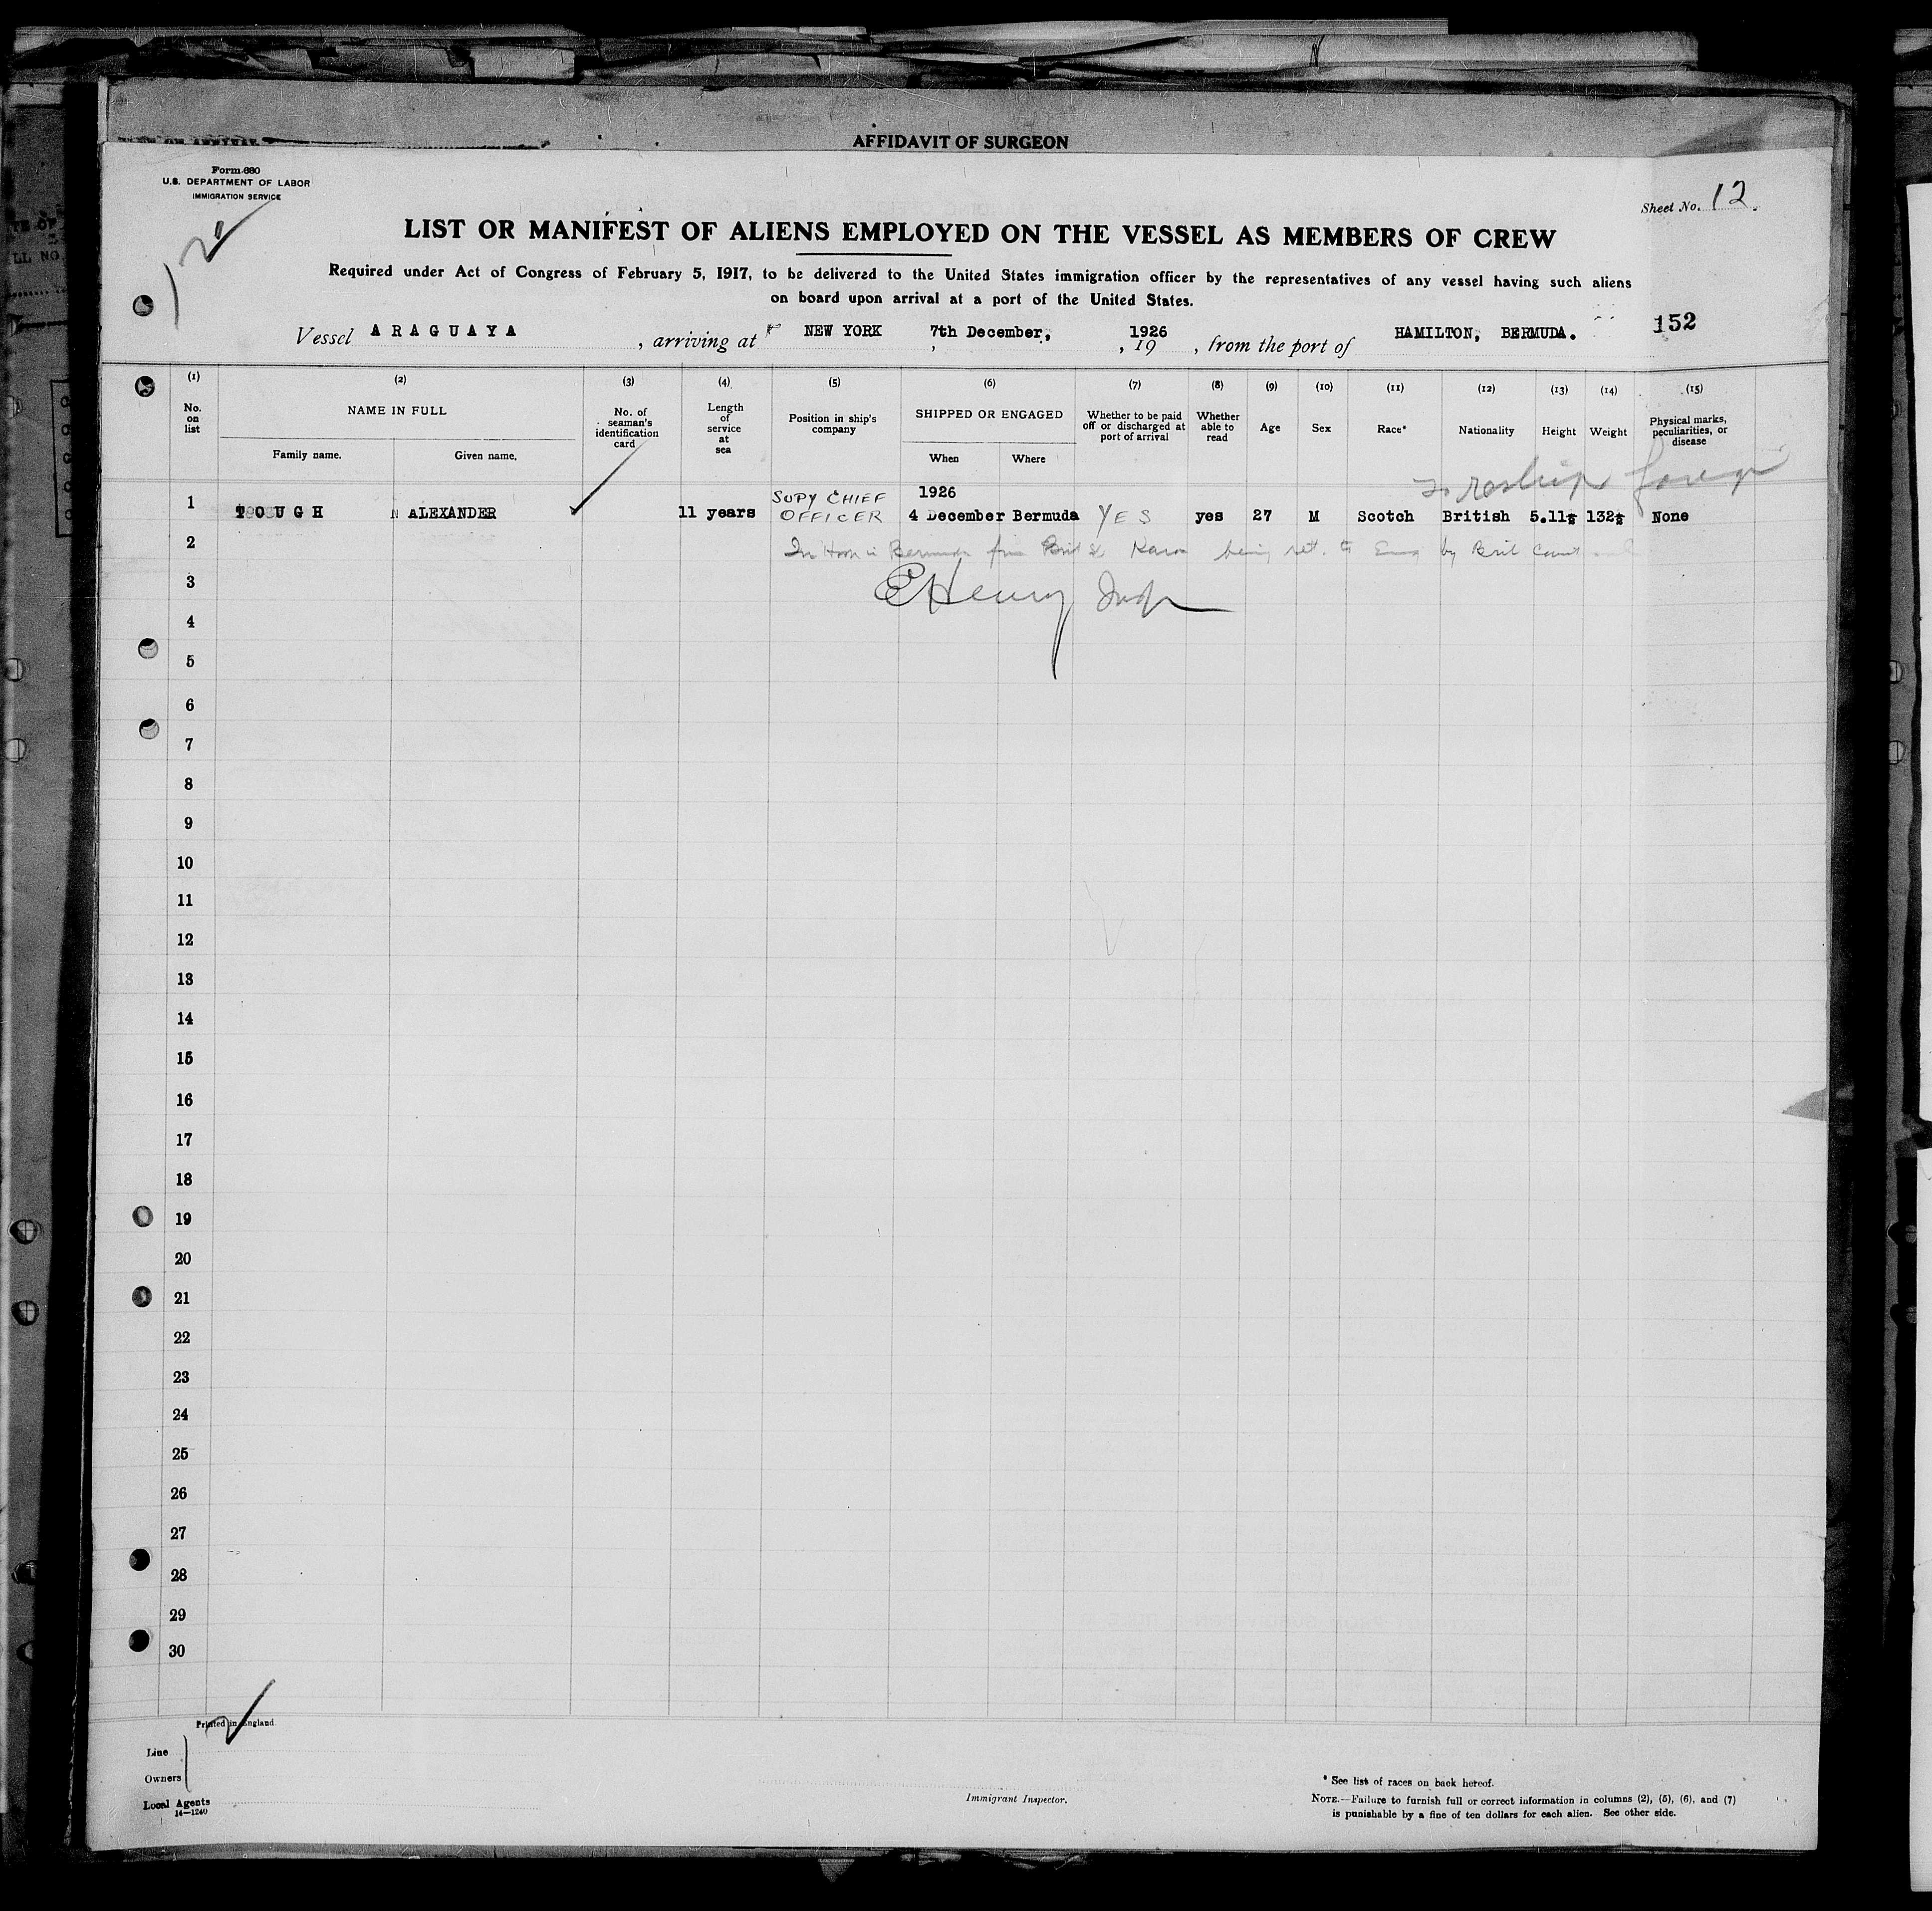 AFFIDAVIT OF SURGEON
Form 680
U.S. DEPARTMENT OF LABOR
IMMIGRATION SERVICE
Sheet No. 12
LIST OR MANIFEST OF ALIENS EMPLOYED ON THE VESSEL AS MEMBERS OF CREW
Required under Act of Congress of February 5, 1917, to be delivered to the United States immigration officer by the representatives of any vessel having such aliens
on board upon arrival at a port of the United States.
Vessel ARAGUAYA, arriving at NEW YORK 7th December, 1926, 19, from the port of HAMILTON, BERMUDA.
152
(1) (2) (3) (4) (5) (6) (7) (8) (9) (10) (11) (12) (13) (14) (15)
No. on list
NAME IN FULL
Family name. Given name.
No. of seaman's identification card
Length of service at sea
Position in ship's company
SHIPPED OR ENGAGED
When Where
Whether to be paid off or discharged at port of arrival
Whether able to read
Age
Sex
Race*
Nationality
Height
Weight
Physical marks, peculiarities, or disease
To reship foreign
1 TOUGH ALEXANDER 11 years SUPY CHIEF OFFICER 1926 4 December Bermuda YES yes 27 M Scotch British 5.11½ 132½ None
2 In Bermuda being ret. to by Brit
3 E Henry Insp
4
5
6
7
8
9
10
11
12
13
14
15
16
17
18
19
20
21
22
23
24
25
26
27
28
29
30
Printed in England
Line
Owners
Local Agents
14—1240
Immigrant Inspector.
* See list of races on back hereof.
NOTE.—Failure to furnish full or correct information in columns (2), (5), (6), and (7)
is punishable by a fine of ten dollars for each alien. See other side.